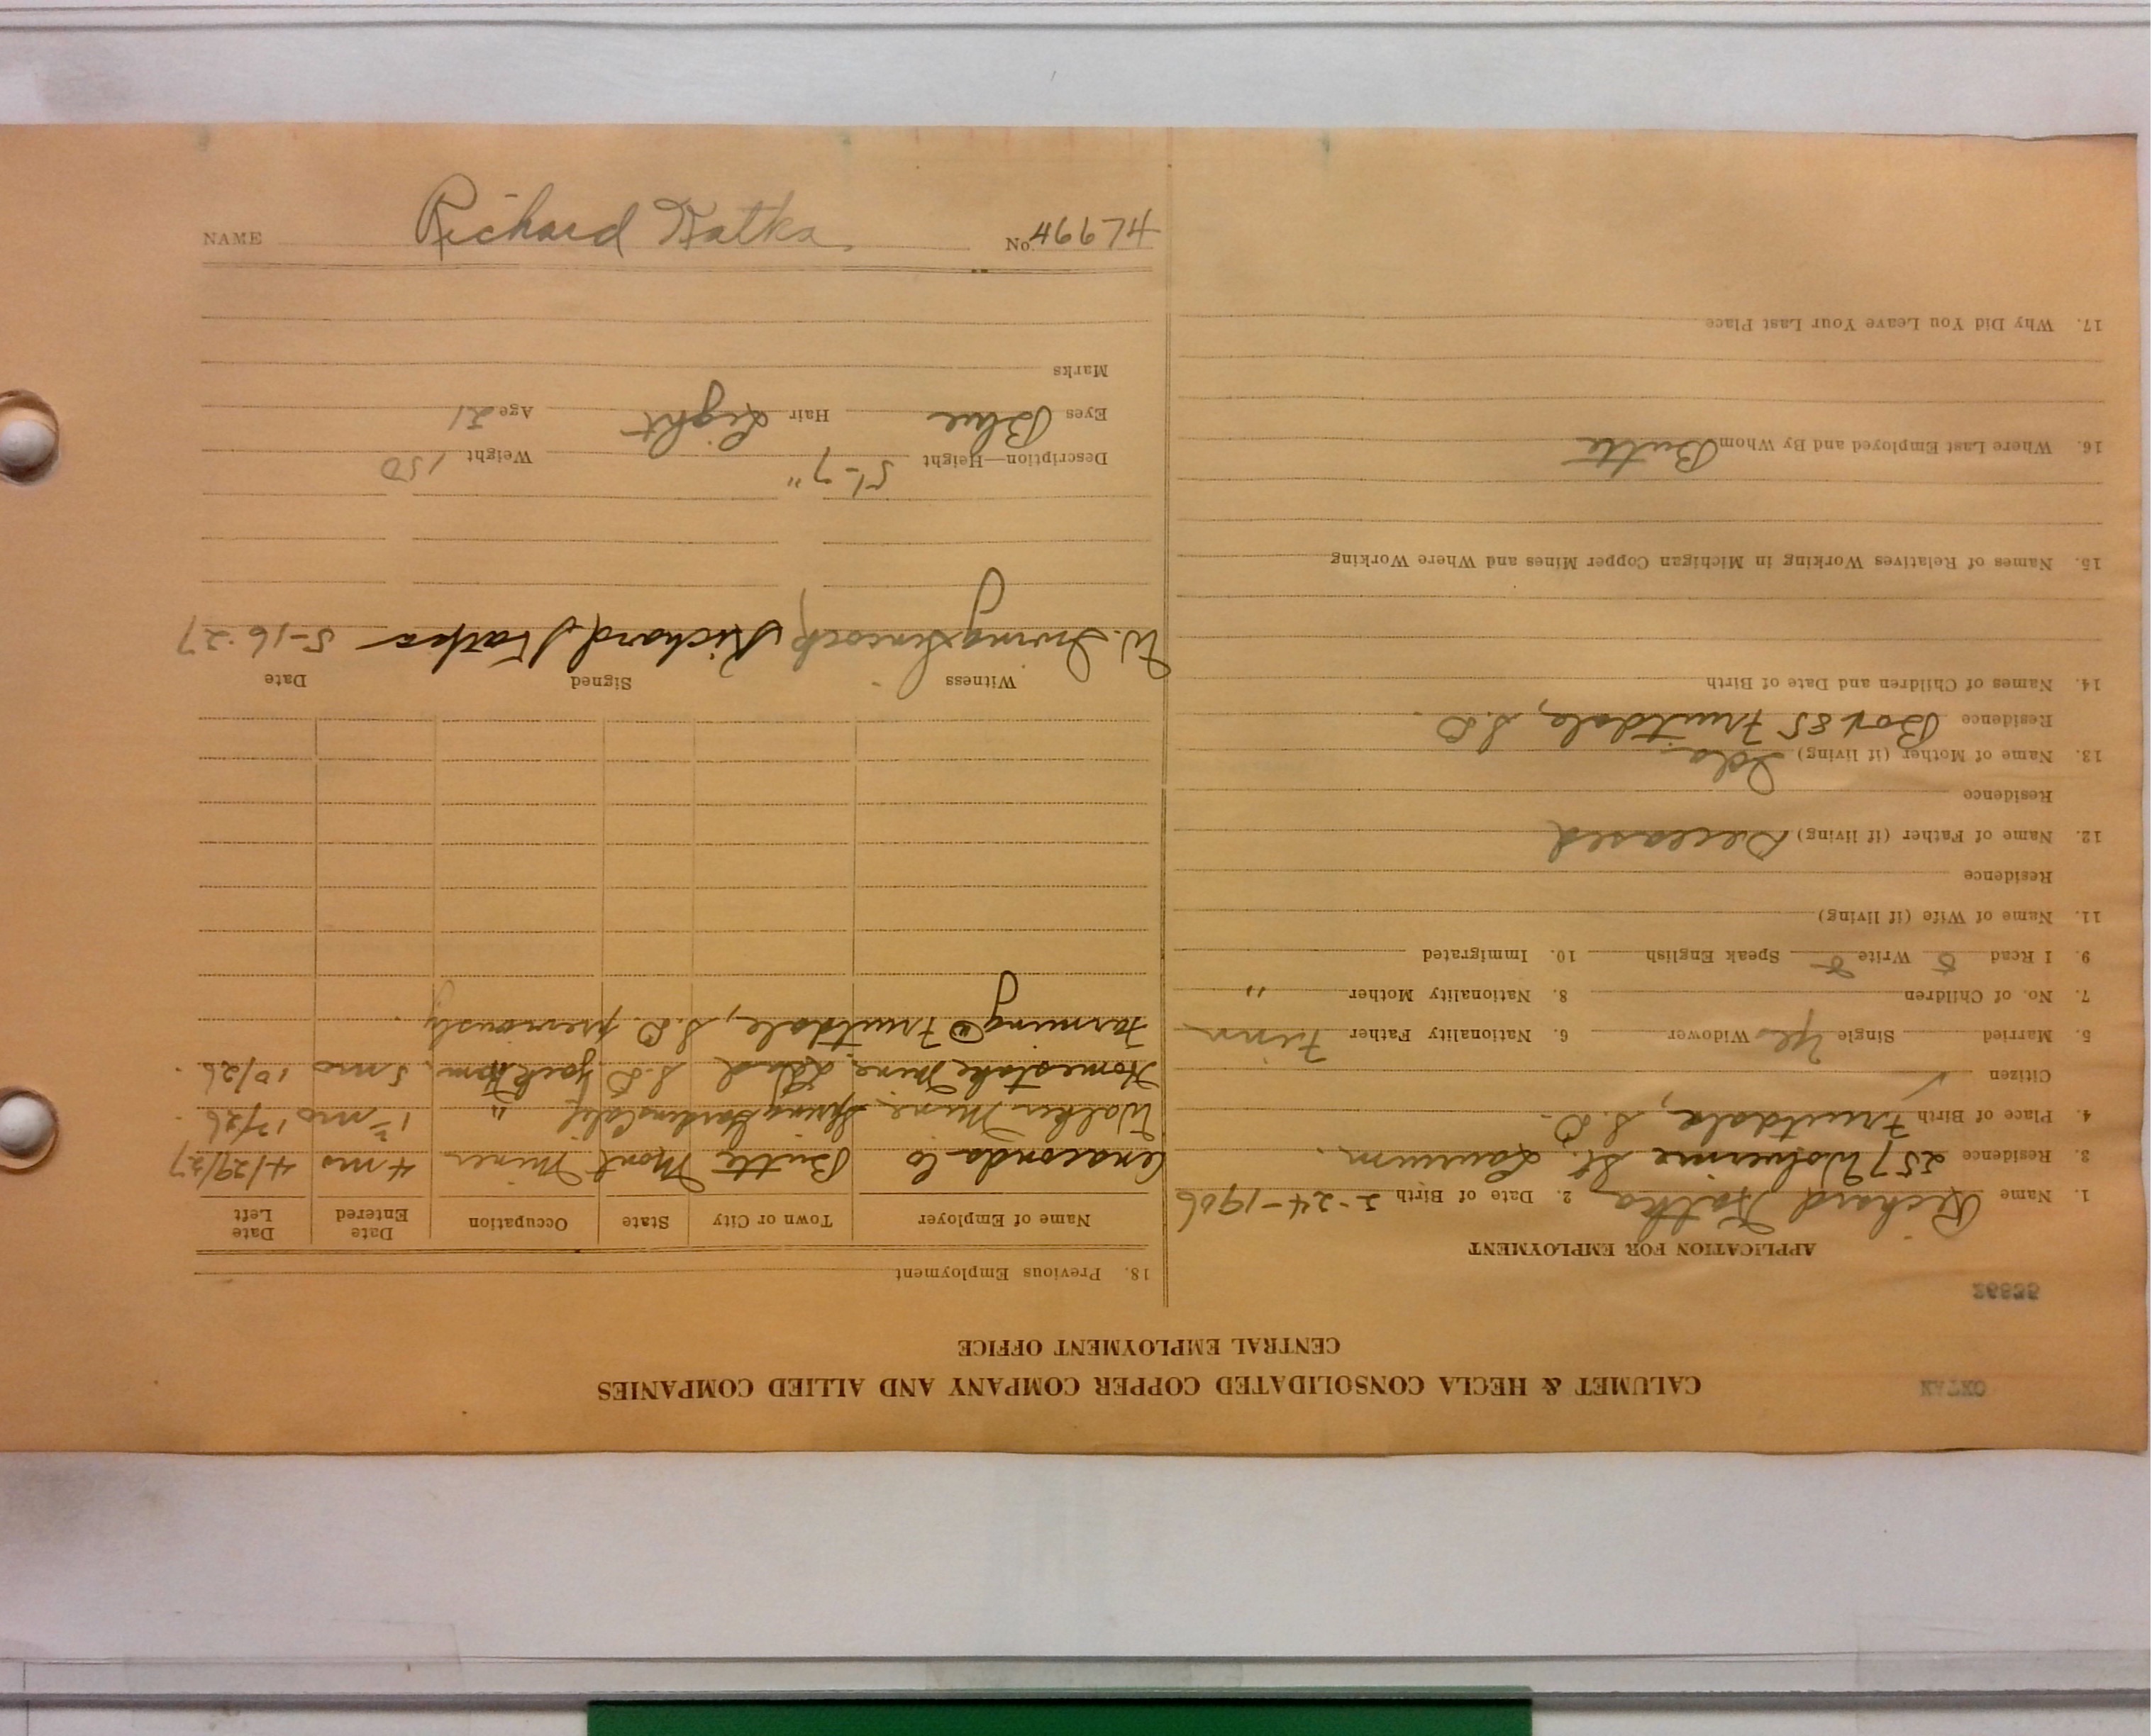 CALUMET & HECLA CONSOLIDATED COPPER COMPANY AND ALLIED COMPANIES
CENTRAL EMPLOYMENT OFFICE
APPLICATION FOR EMPLOYMENT
1. Name Richard Hatka 2. Date of Birth 2-24-1906
3. Residence 257 Wolverine St. Laurium.
4. Place of Birth Fruitdale, S.D.
Citizen ✓
5. Married Single Yes Widower 6. Nationality Father Finn
7. No. of Children 8. Nationality Mother "
9. I Read Write Speak English 10. Immigrated
11. Name of Wife (if living)
Residence
12. Name of Father (if living) Deceased
Residence
13. Name of Mother (if living) Ida
Residence Box 85 Fruitdale, S.D.
14. Names of Children and Date of Birth
15. Names of Relatives Working in Michigan Copper Mines and Where Working
16. Where Last Employed and By Whom Butte
17. Why Did You Leave Your Last Place
18. Previous Employment
Name of Employer Town or City State Occupation Date Entered Date Left
Anaconda Co Butte Mont Miner 4 mo 4/29/27
Walker Mine, Spring Garden Calif " mo 12/26.
Homestake Mine, Lead S.D Jack Ham. 5 mo 10/26.
Farming @ Fruitdale, S.D. previously.
Witness Signed Date
W. Irving Sincock Richard Hatka 5-16-27
Description—Height 5'-7" Weight 150
Eyes Blue Hair Light Age 21
Marks
NAME Richard Hatka No. 46674